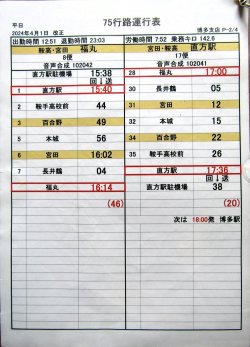 75行路運行表
平日
博多支店 P-2/4
2024年4月1日 改正
出勤時間 12:51 退勤時間 23:03
労働時間 7:52 乗務キロ 142.6
鞍高・宮田 福丸
8便
音声合成 102042
直方駅駐機場 15:38
回↓送
1 直方駅 15:40
2 鞍手高校前 44
3 百合野 49
5 本城 56
6 宮田 16:02
7 長井鶴 04
福丸 16:14
(46)
宮田・鞍高 直方駅
17便
音声合成 102041
28 福丸 17:00
30 長井鶴 05
31 宮田 12
32 本城 15
34 百合野 22
35 鞍手高校前 26
直方駅 17:36
回↓送
直方駅駐機場 38
(20)
次は 18:00発 博多駅